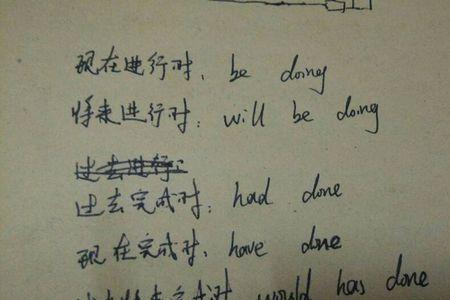 现在进行时, be doing
将来进行时: will be doing
过去进行:
过去完成时: had done
现在完成时, have done
过去将来完成时 would has done